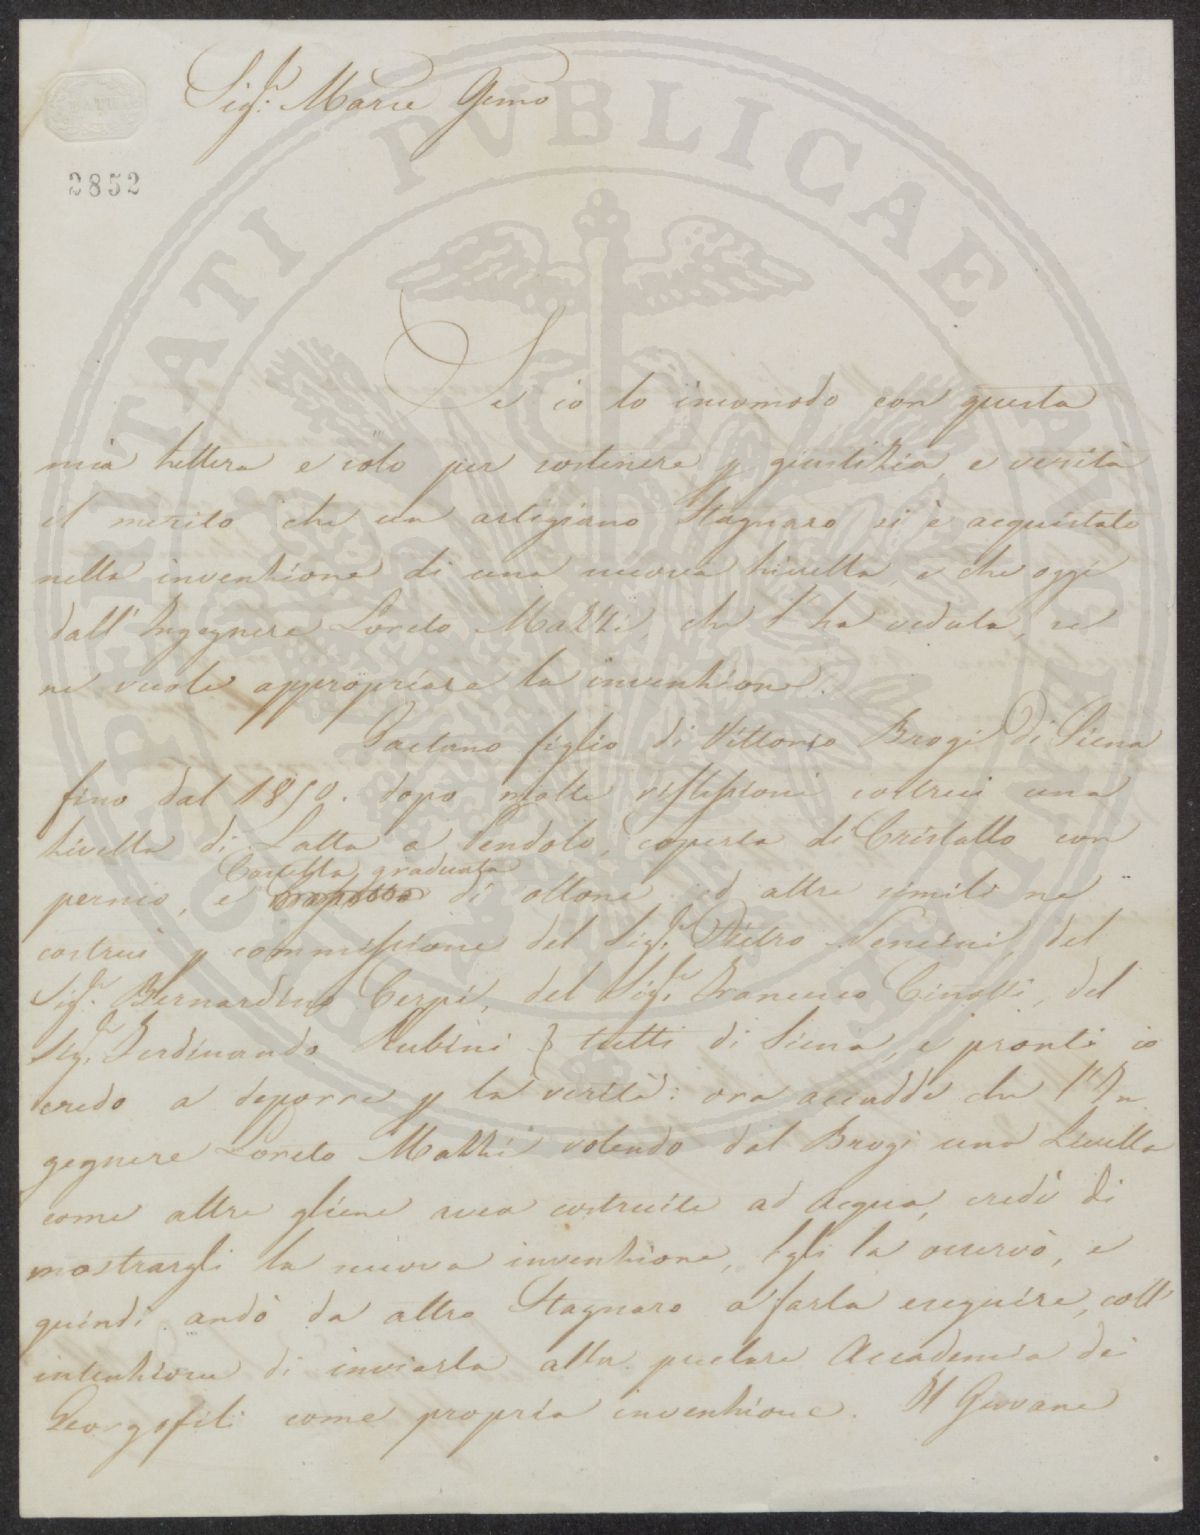 Sig.r Mar.se Gemo
2852
Se io lo incomodo con questa
mia lettera e solo per sostenere p giustizia, e verità
il merito che un artigiano Stagnaro si è acquistato
nella inventione di una nuova livella, e che oggi
dall' Ingegnere Loreto Mazzi, che l' ha veduta, se
ne vuole appropriare la inventione.
Gaetano figlio di Vittorio Brogi di Siena
fino dal 1850. dopo molte riflessioni costruì una
livella di Latta a Pendolo, coperta di Cristallo con
Cassetta graduata
pernio, e di ottone ed altre simili ne
costruì p commissione del Sig.r Pietro Nencini, del
Sig.r Bernardino Cerpi, del Sig.r Francesco Cinotti, del
Sig.r Ferdinando Rubini } tutti di Siena, e pronti io
credo a deporre p la verità: ora accadde che l' In
gegnere Loreto Mazzi volendo dal Brogi una Livella
come altre gliene avea costruite ad acqua, credè di
mostrargli la nuova inventione, Egli la osservò, e
quindi andò da altro Stagnaro a farla eseguire, coll'
intentione di inviarla alla preclare Accademia dei
Georgofili come propria inventione. Il Giovane
PVBLICAE